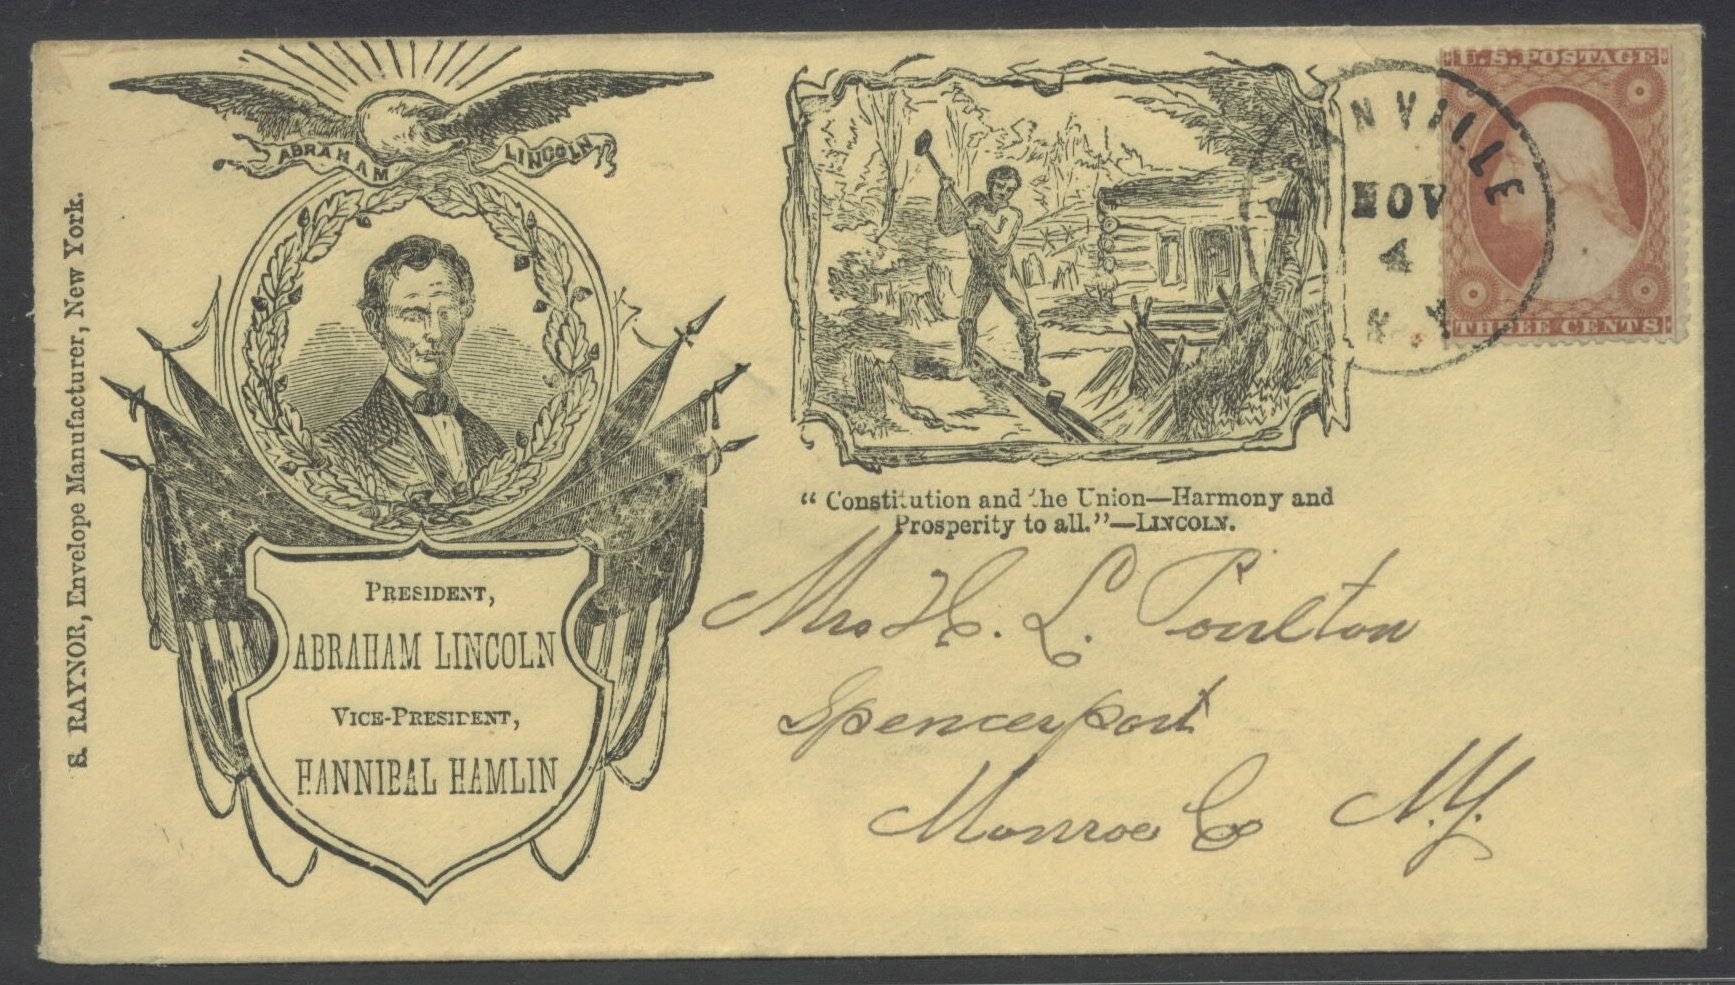 S. RAYNOR, Envelope Manufacturer, New York.
ABRAHAM LINCOLN
PRESIDENT,
ABRAHAM LINCOLN
VICE-PRESIDENT,
HANNIBAL HAMLIN
“Constitution and the Union—Harmony and
Prosperity to all.”—LINCOLN.
NVILLE
NOV
4
U.S. POSTAGE
THREE CENTS
Mrs H. L. Poulton
Spencerport
Monroe Co N.Y.